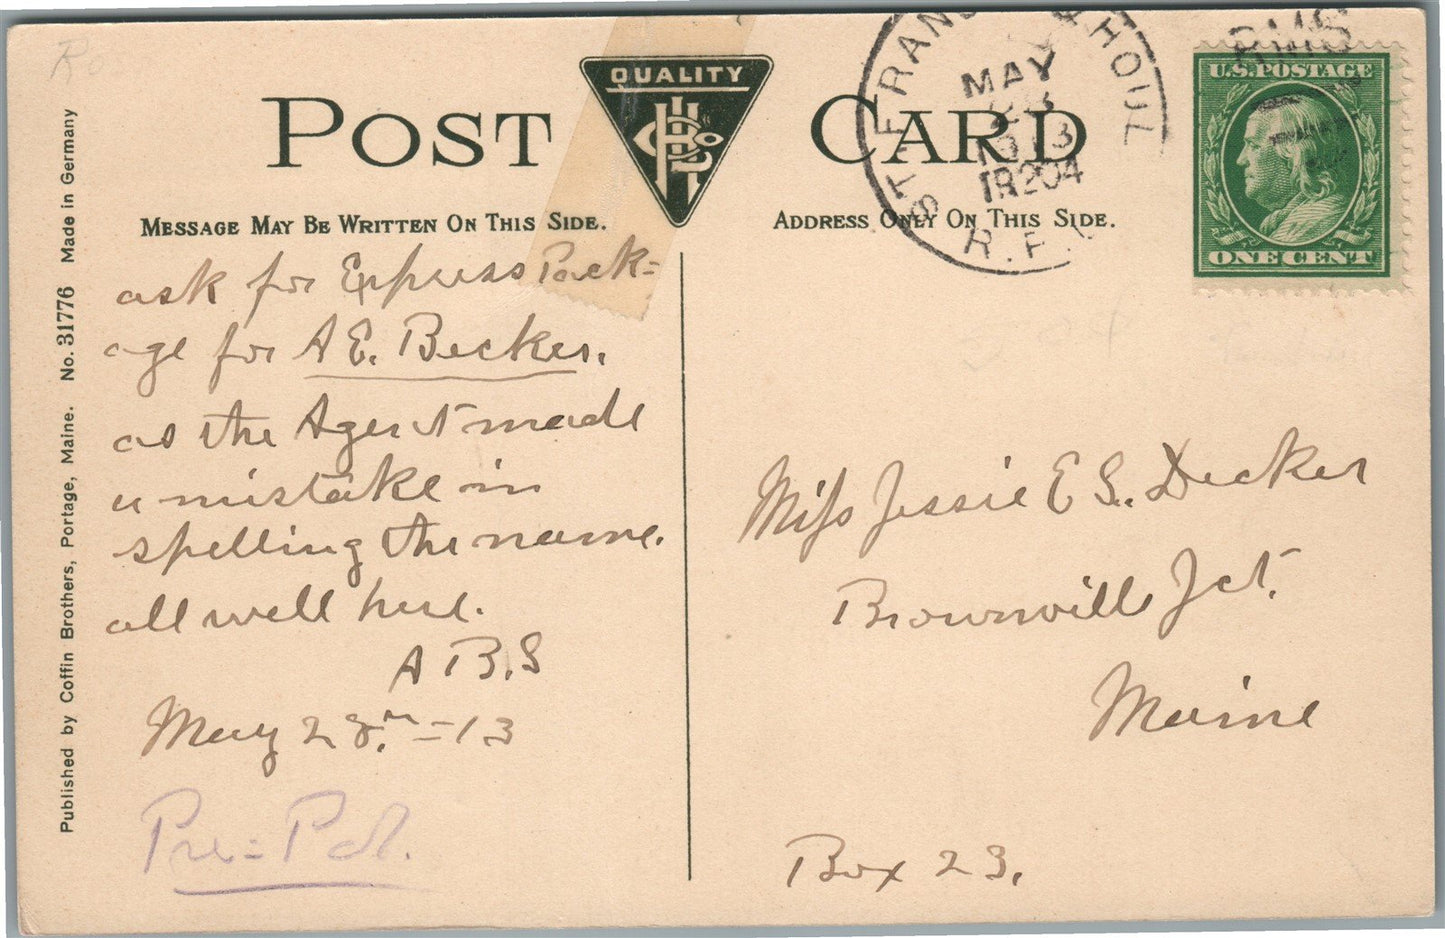 Ross
POST CARD
QUALITY
HPL Co
MESSAGE MAY BE WRITTEN ON THIS SIDE.
ADDRESS ONLY ON THIS SIDE.
ST. FRAN & HOUL
MAY
1913
TR204
R.P.
RMS
U.S. POSTAGE
ONE CENT
Published by Coffin Brothers, Portage, Maine. No. 31776 Made in Germany
ask for Express Pack=
age for A E. Becker.
as the Agent made
a mistake in
spelling the name.
all well here.
A B. S
May 28.th = 13
Pre=Pd.
Miss Jessie E S. Decker
Brownville Jct.
Maine
Box 23.